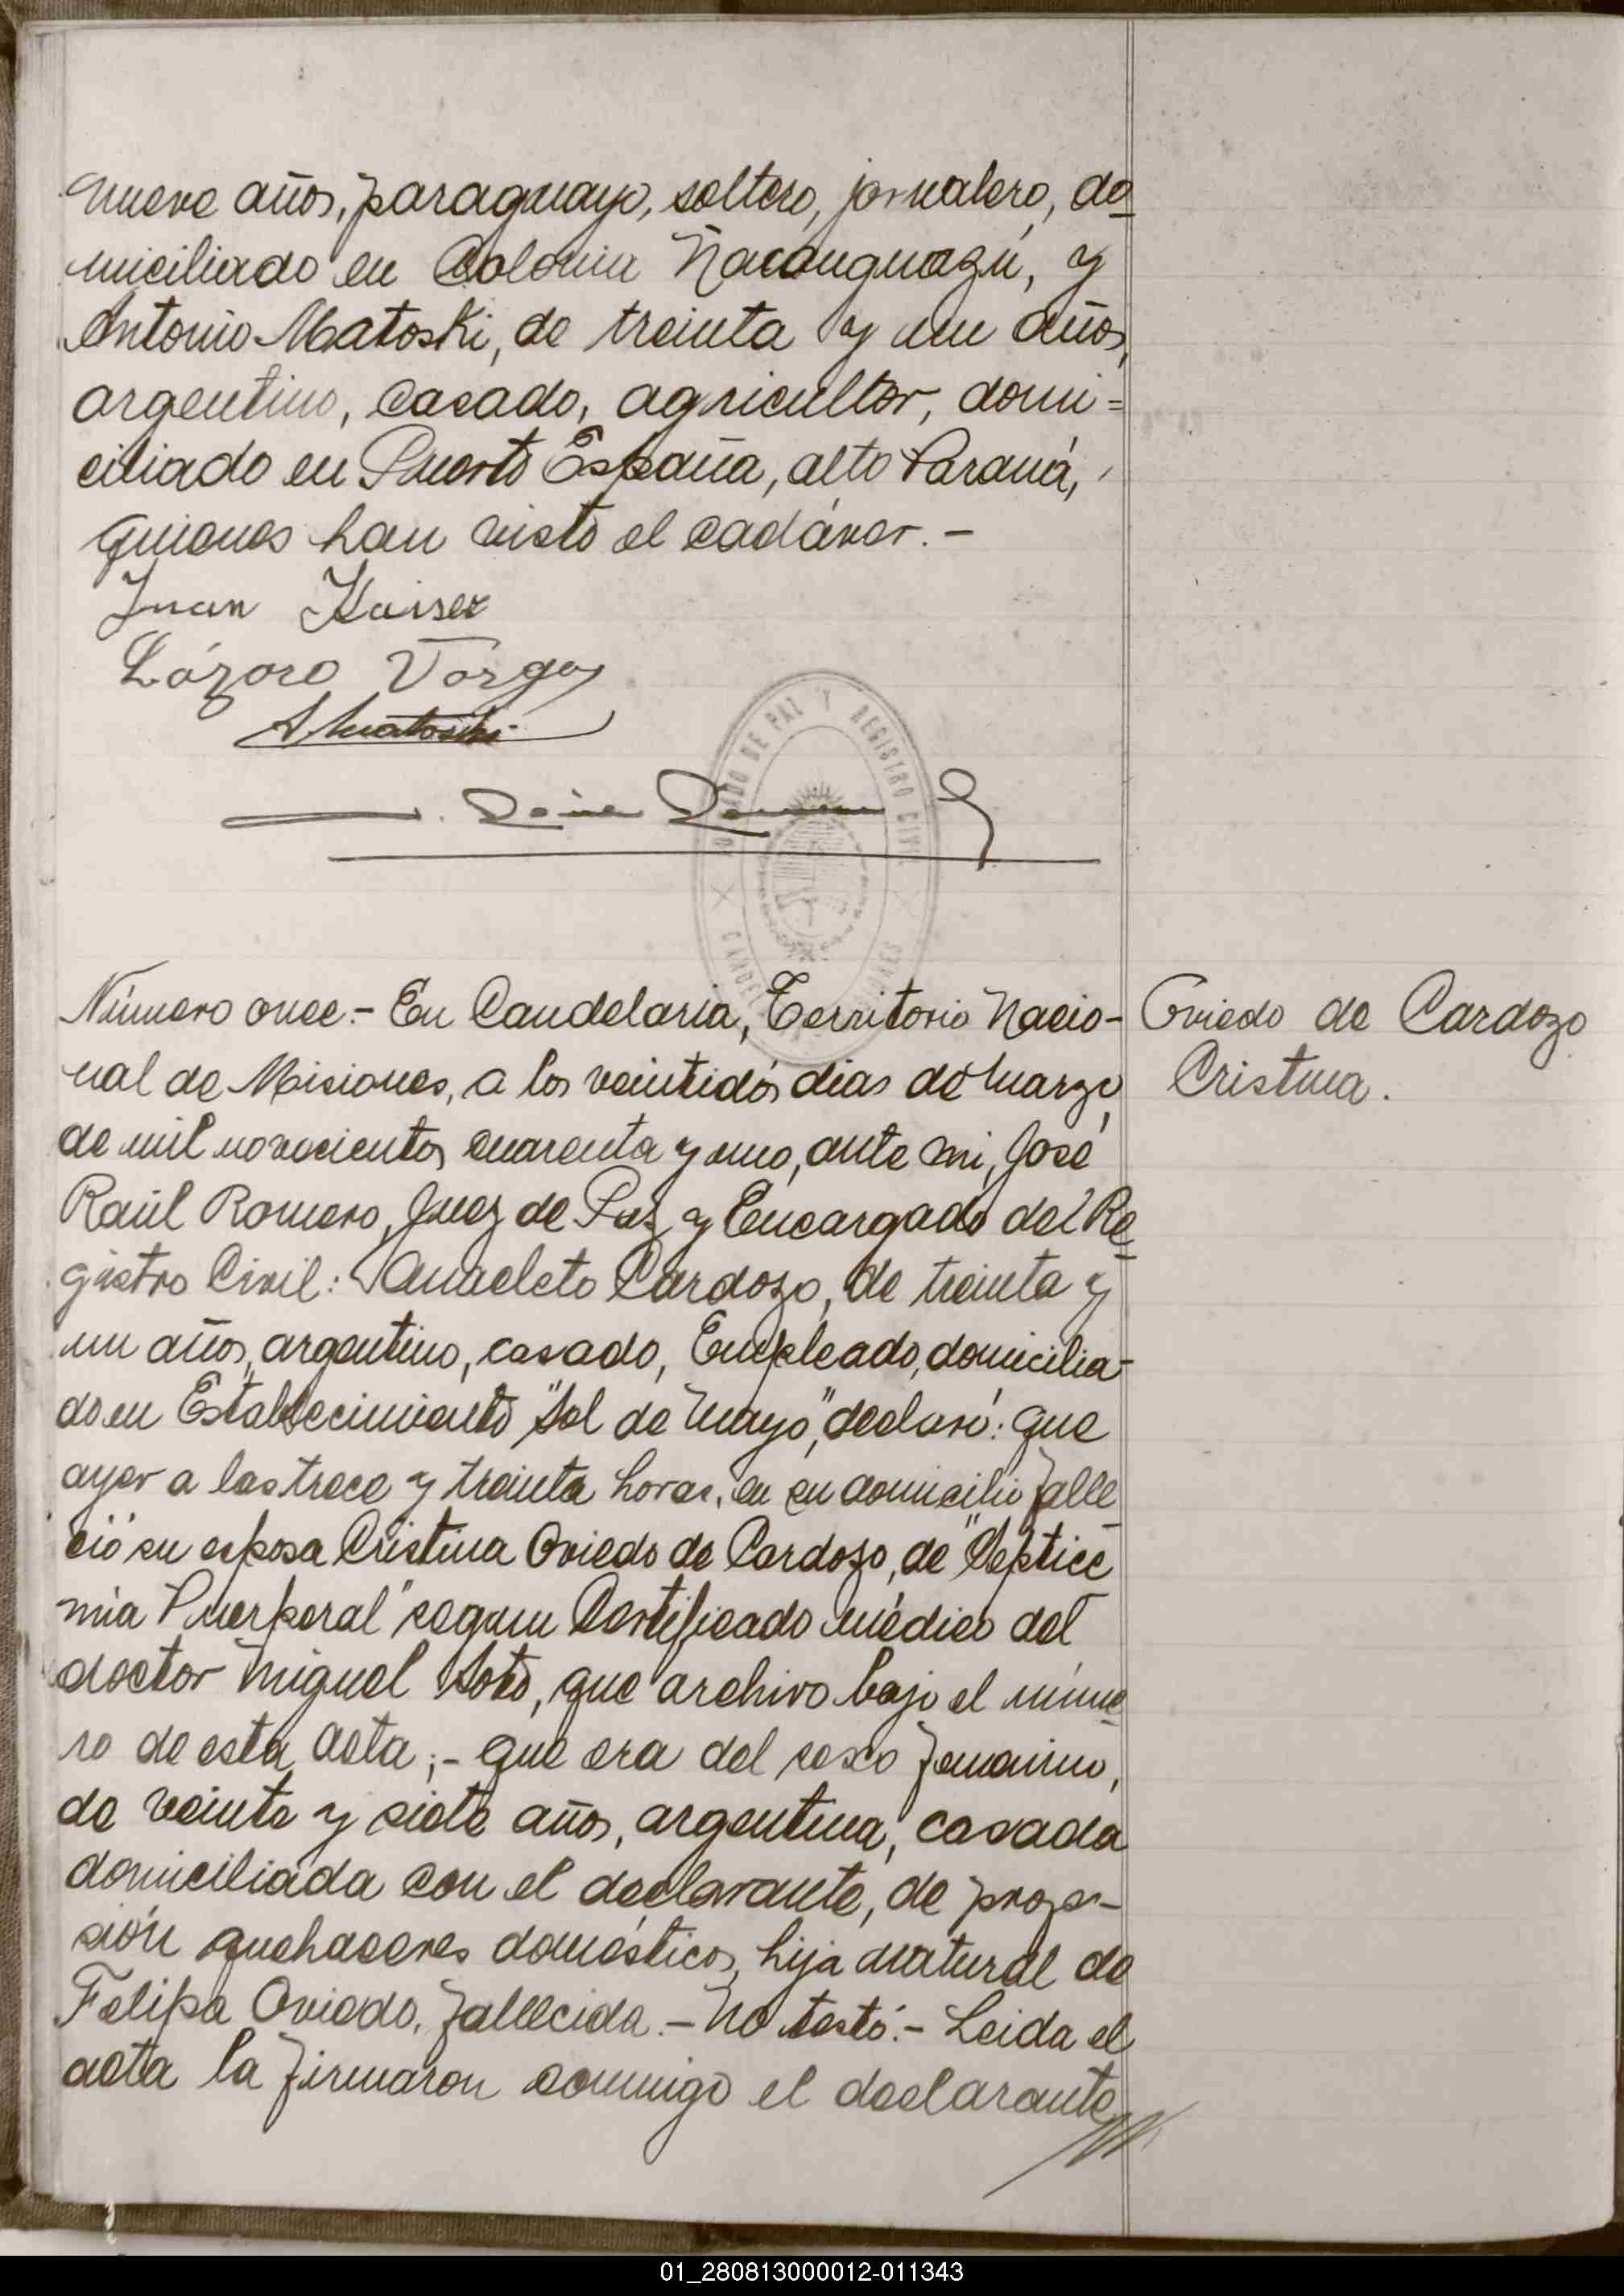 nueve años, paraguayo, soltero, jornalero, do
miciliado en Colonia Ñacanguazú, y
Antonio Matoski, de treinta y un años,
argentino, casado, agricultor, domi=
ciliado en Puerto España, alto Paraná,
quienes han visto el cadáver.-
Juan Kaiser
Lázaro Vargas
A Matoski
JUZGADO DE PAZ Y REGISTRO CIVIL
Número once.- En Candelaria, Territorio Nacio-
nal de Misiones, a los veintidós dias de Marzo
de mil novecientos cuarenta y uno, ante mi, José
Raúl Romero, Juez de Paz y Encargado del Re
gistro Civil: Anacleto Cardozo, de treinta y
un años, argentino, casado, Empleado, domicilia-
do en Establecimiento "Sol de Mayo", declaró: que
ayer a las trece y treinta horas, en su domicilio falle
ció su esposa Cristina Oviedo de Cardozo, de "Septice
mia Puerperal" segun Certificado médico del
doctor Miguel Soto, que archivo bajo el núme
ro de esta acta;- que era del sexo femenino,
de veinte y siete años, argentina, casada
domiciliada con el declarante, de profe-
sión quehaceres domésticos, hija natural de
Felipa Oviedo, fallecida.- No testó.- Leida el
acta la firmaron conmigo el declarante
Oviedo de Cardozo
Cristina.
01_280813000012-011343